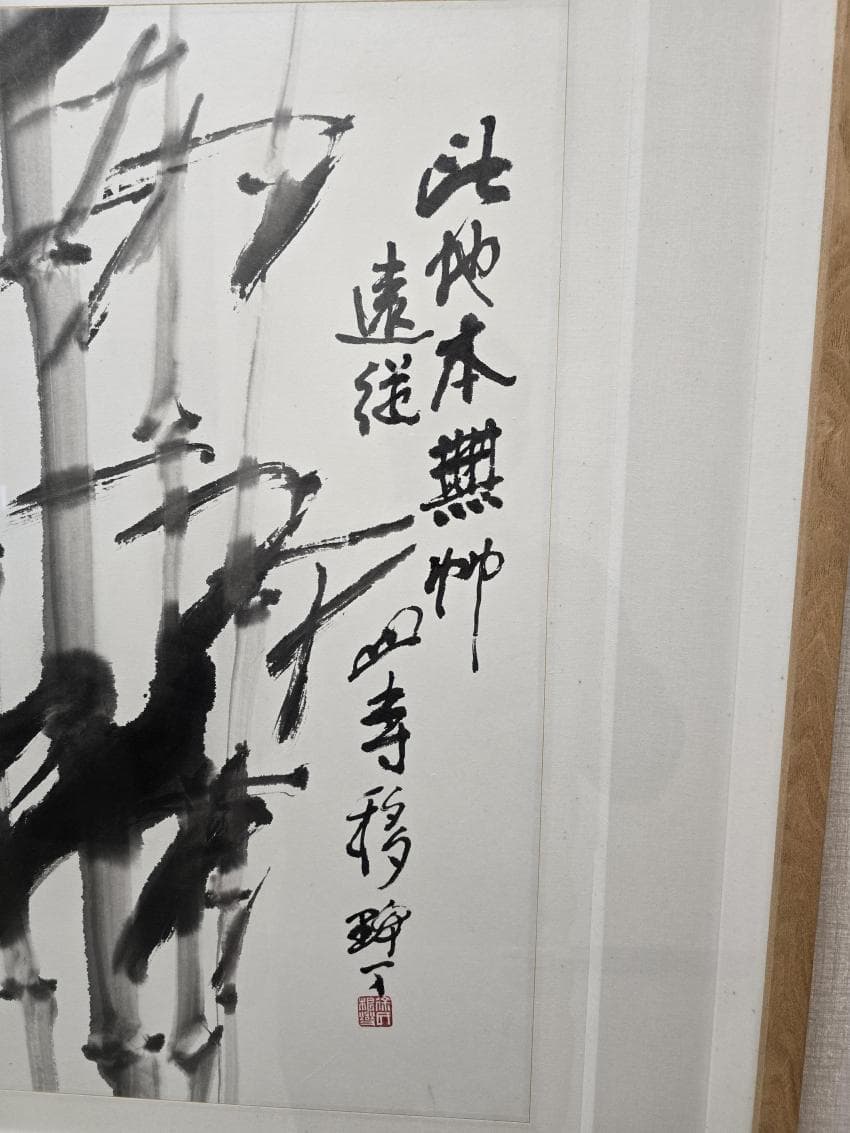 此地本無竹
遠從山寺移
野丁